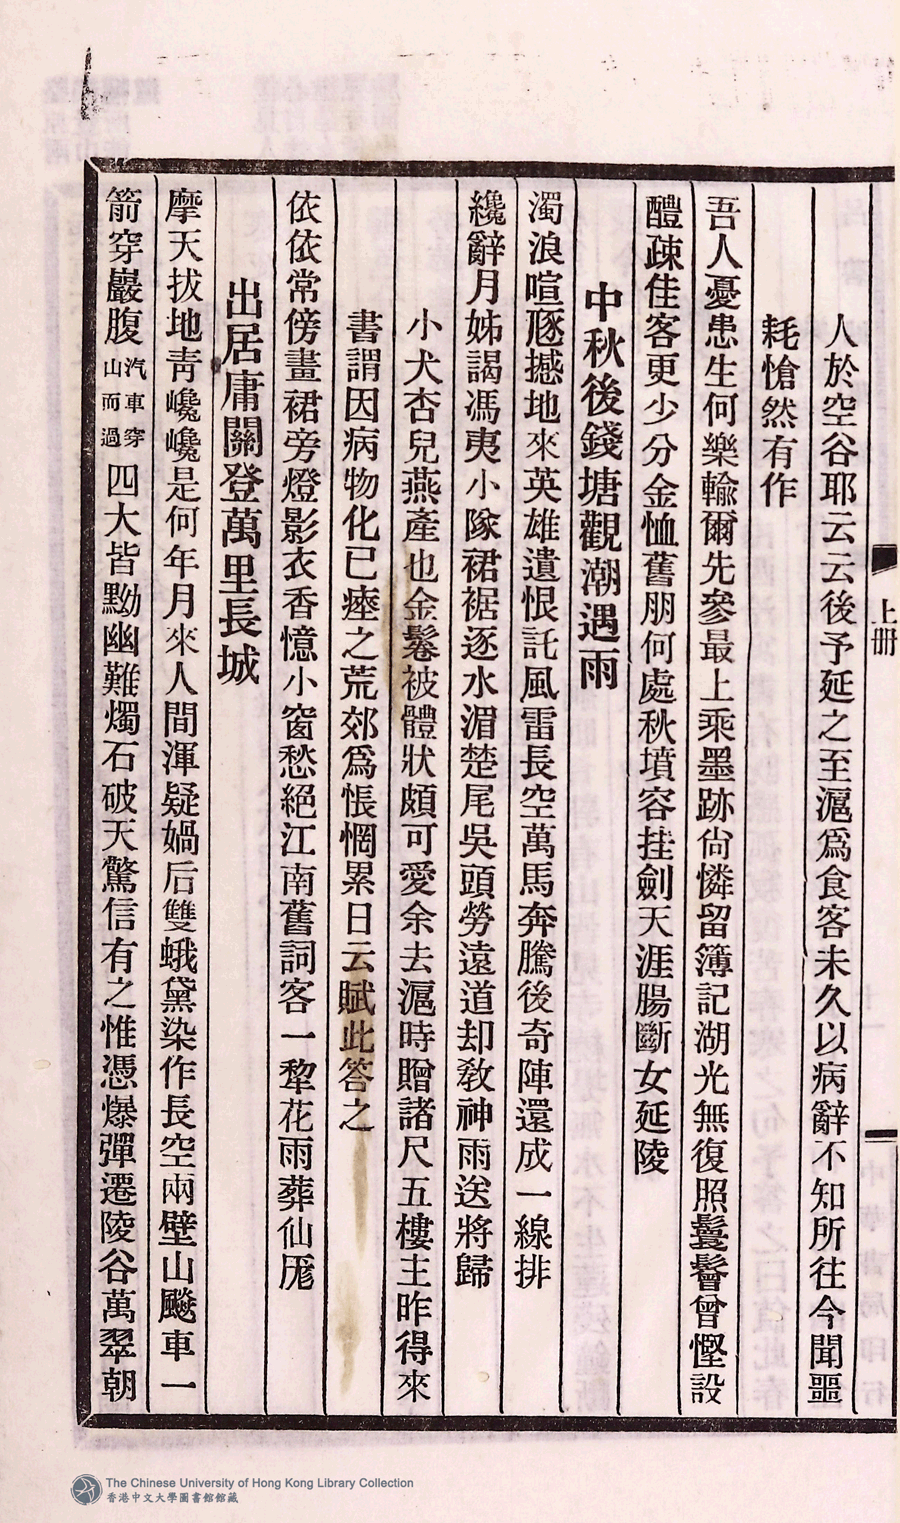 上册
人於空谷耶云云後予延之至滬爲食客未久以病辭不知所往今聞噩
耗愴然有作
吾人憂患生何樂輸爾先參最上乘墨跡尙憐留簿記湖光無復照鬟鬙曾慳設
醴疎佳客更少分金恤舊朋何處秋墳容挂劍天涯腸斷女延陵
中秋後錢塘觀潮遇雨
濁浪喧豗撼地來英雄遺恨託風雷長空萬馬奔騰後奇陣還成一線排
纔辭月姊謁馮夷小隊裙裾逐水湄楚尾吳頭勞遠道却敎神雨送將歸
小犬杏兒燕產也金鬈被體狀頗可愛余去滬時贈諸尺五樓主昨得來
書謂因病物化已瘞之荒郊爲悵惘累日云賦此答之
依依常傍畫裙旁燈影衣香憶小窗愁絕江南舊詞客一犂花雨葬仙厖
出居庸關登萬里長城
摩天拔地靑巉巉是何年月來人間渾疑媧后雙蛾黛染作長空兩壁山飈車一
箭穿巖腹汽車穿山而過四大皆黝幽難燭石破天驚信有之惟憑爆彈遷陵谷萬翠朝
The Chinese University of Hong Kong Library Collection
香港中文大學圖書館館藏